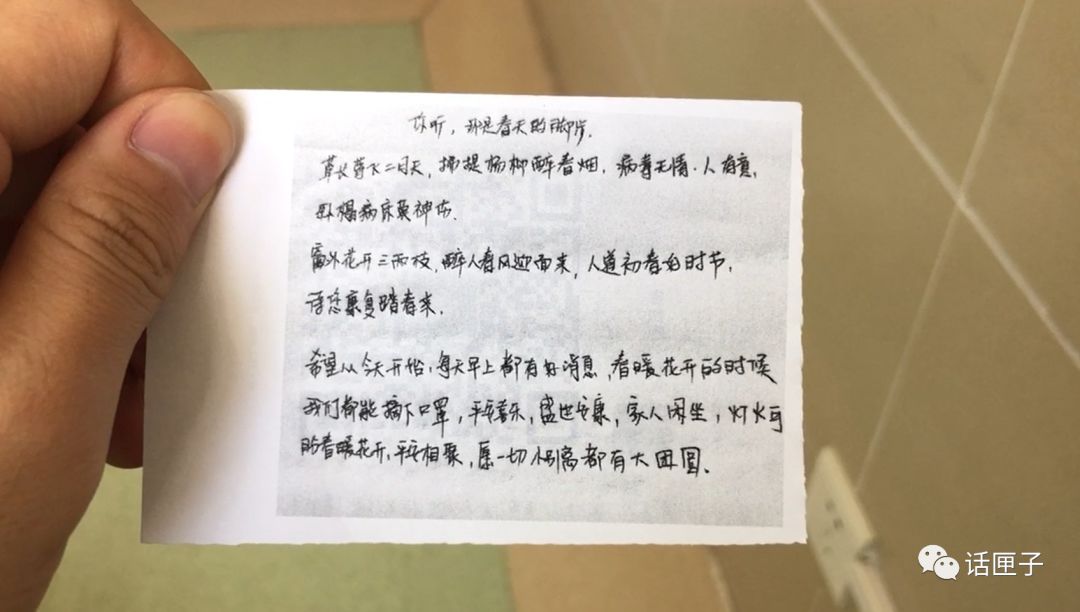 你听，那是春天的脚步.
草长莺飞二月天，拂提杨柳醉春烟，病毒无情.人有意,
卧榻病床莫神伤.
窗外花开三两枝，醉人春风迎面来，人道初春始时节，
待您康复踏春来.
希望从今天开始，每天早上都有好消息，春暖花开的时候
我们都能摘下口罩，平安喜乐，盛世安康，家人闲坐，灯火可
春暖花开，平安相聚，愿一切小别离都有大团圆.
话匣子